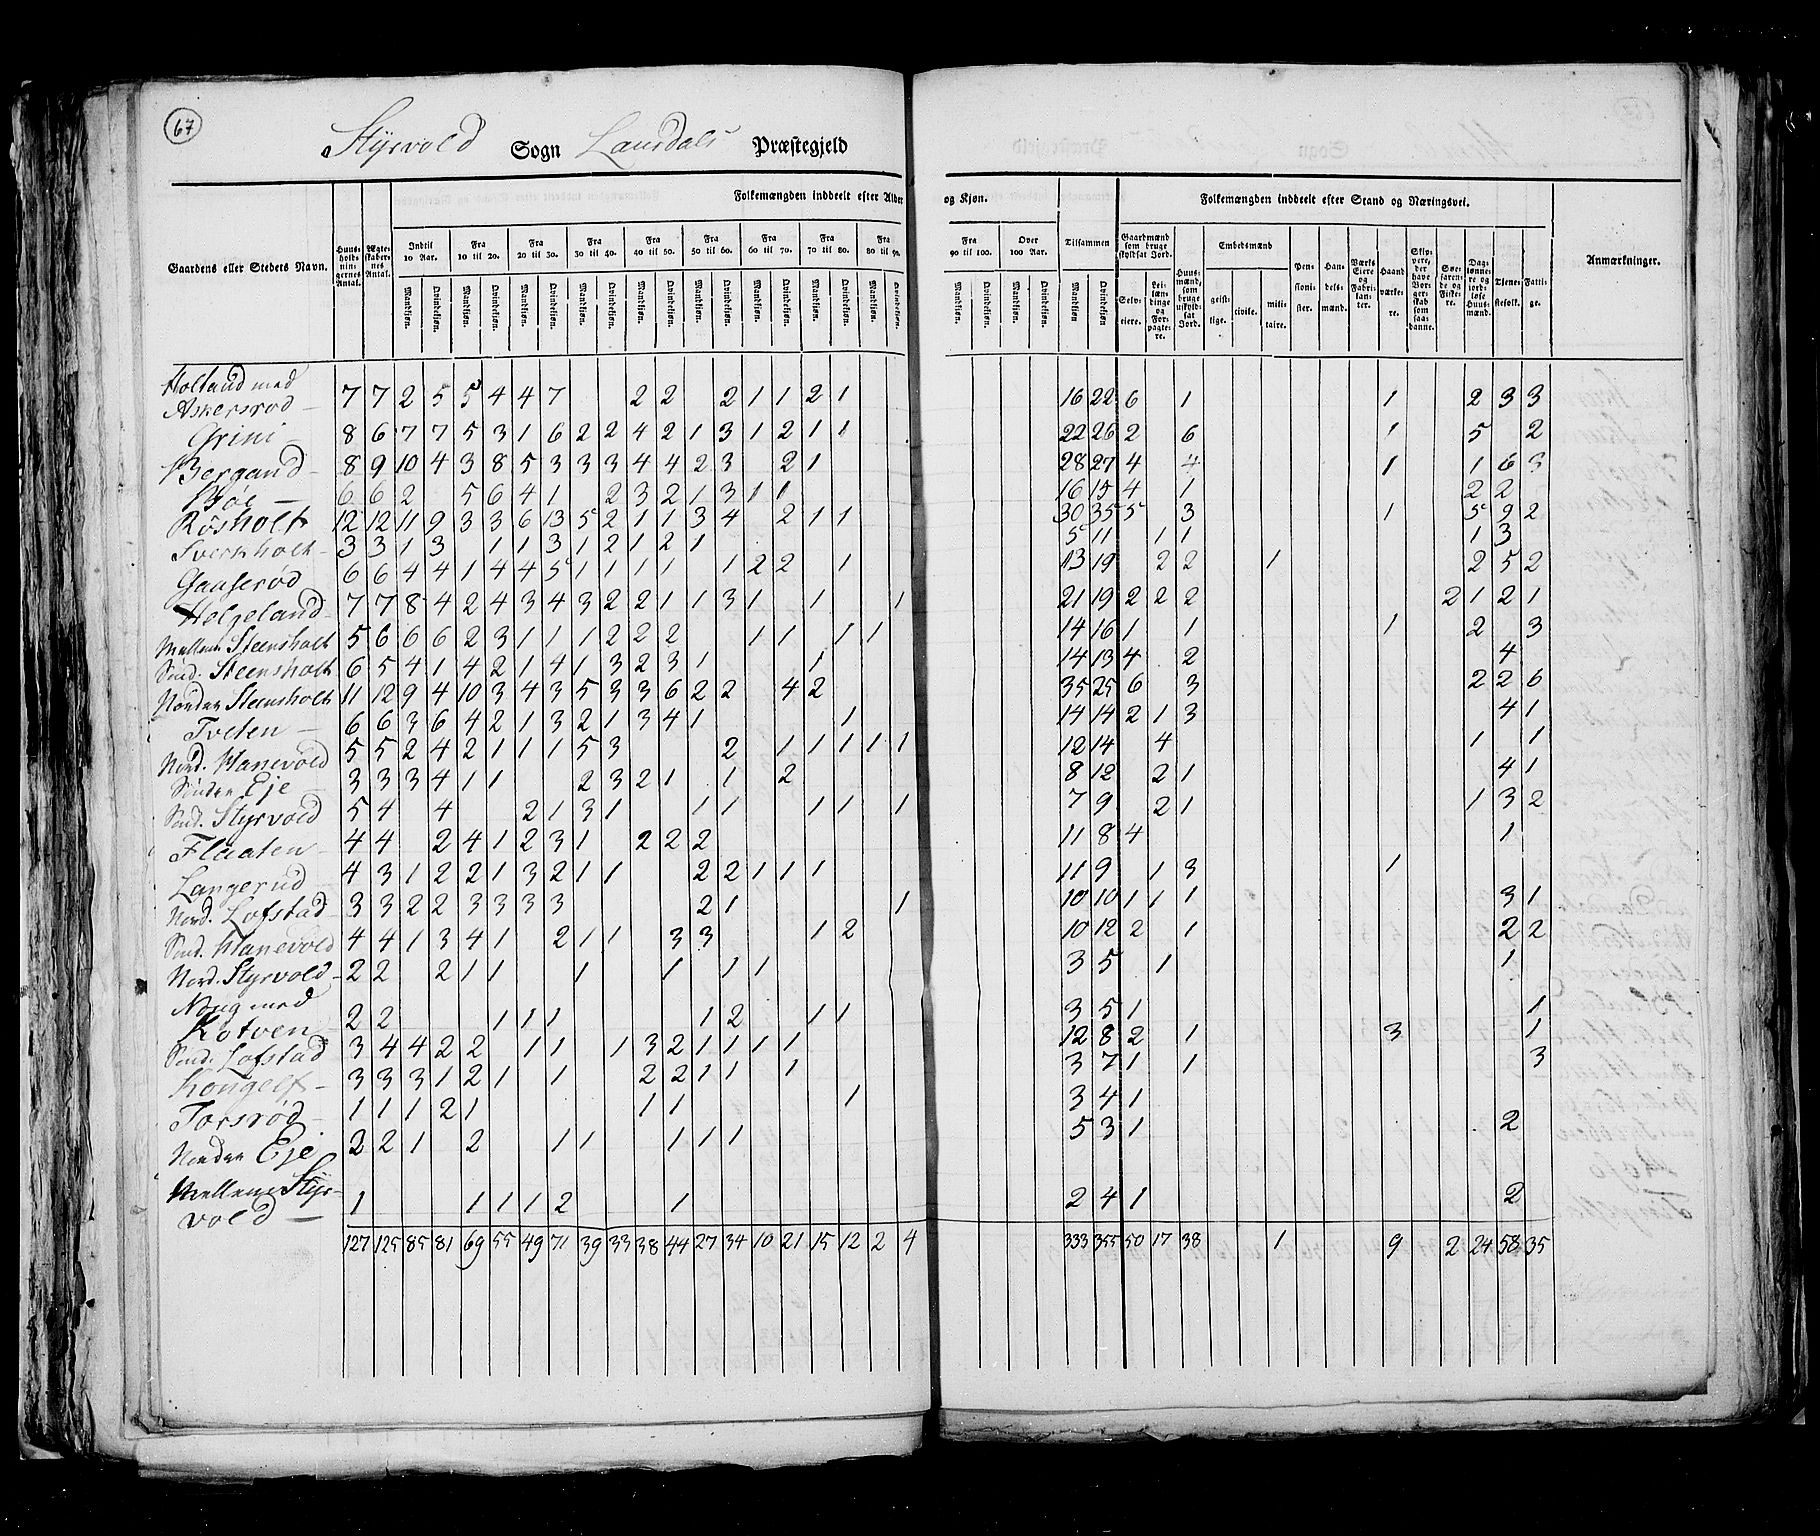 67
Styrvold Sogn Laurdals Præstegjeld
Gaardens eller Stedets Navn.
Huus-holdnin-gernes Antal.
Ægte-skaber-nes Antal.
Folkemængden inddeelt efter Alder og Kjøn.
Indtil 10 Aar. Fra 10 til 20. Fra 20 til 30. Fra 30 til 40. Fra 40 til 50. Fra 50 til 60. Fra 60 til 70. Fra 70 til 80. Fra 80 til 90. Fra 90 til 100. Over 100 Aar. Tilsammen
Mandkjøn. Qvindekjøn.
Folkemængden inddeelt efter Stand og Næringsvei.
Gaardmænd som bruge skyldsat Jord.
Selv-eiere.
Lei-lændinge og For-pagte-re.
Huus-mænd, som bruge uskyld-sat Jord.
Embedsmænd
geist-lige. civile. mili-taire.
Pen-sioni-ster.
Han-dels-mænd.
Værks Eiere og Fabri-kan-ter.
Haand-værke-re.
Skip-pere, der have Bor-ger-skab som saa-danne.
Søe-faren-de og Fiske-re.
Dag-lønne-re og jord-løse Huus-mænd.
Tjene-stefolk.
Fatti-ge.
Anmærkninger.
Holtand med
Askersrod 7 7 2 5 5 4 4 7 2 2 2 1 1 2 1 16 22 6 1 1 2 3 3
Grini 8 6 7 7 5 3 1 6 2 2 4 2 1 3 1 2 1 1 22 26 2 6 1 5 2
Bergand 8 9 10 4 3 8 5 3 3 3 4 4 2 3 2 1 28 27 4 4 1 1 6 3
Bøe 6 6 2 5 6 4 1 2 3 2 1 3 1 1 16 15 4 1 2 2
Rösholt 12 12 11 9 3 3 6 13 5 2 1 1 3 4 2 1 1 30 35 5 3 1 5 9 2
Sverkholt 3 3 1 3 1 1 3 1 2 1 2 1 5 11 1 1 1 3
Gaaserød 6 6 4 4 1 4 4 5 1 1 1 1 1 2 2 1 13 19 2 2 1 2 5 2
Helgeland 7 7 8 4 2 4 3 4 3 2 2 1 1 3 1 1 1 21 19 2 2 2 2 1 2 1
Mellem Steensholt 5 6 6 6 2 3 1 1 1 2 2 2 1 1 1 1 14 16 1 1 1 2 3
Sönd. Steensholt 6 5 4 1 4 2 1 4 1 3 2 3 1 1 14 13 4 2 4
Norden Steensholt 11 12 9 4 10 3 4 3 5 3 3 6 2 2 4 2 35 25 6 3 2 2 6
Tveten 6 6 3 6 4 2 1 3 2 1 3 4 1 1 14 14 2 1 3 4 1
Nord. Hanevold 5 5 2 4 2 1 1 1 5 3 2 1 1 1 1 1 12 14 4 1 1
Sönden Eje 3 3 3 4 1 1 2 3 2 1 1 2 8 12 2 1 4 1
Sönd. Styrvold 5 4 4 2 1 3 1 1 1 1 1 1 7 9 2 1 1 3 2
Flaaten 4 4 2 4 1 2 3 1 2 2 2 11 8 4 1
Langerud 4 3 1 2 2 1 3 2 1 1 2 2 1 1 1 11 9 1 3 1
Nord. Lofstad 3 3 2 2 3 3 3 3 2 1 1 10 10 1 1 1 3 1
Sönd. Hanevold 4 4 1 3 4 1 2 1 1 3 3 1 2 10 12 2 1 2 2
Nord. Styrvold 2 2 2 1 1 1 1 1 1 3 5 1 1
Noug med
Kotven 2 2 1 1 1 1 2 1 1 3 5 1 1
Sönd. Lofstad 3 4 4 2 2 1 1 1 3 2 1 1 1 1 12 8 2 1 3 1
Kongelf 3 3 3 1 2 1 1 2 2 1 1 1 3 7 1 1 3
Torsrød 1 1 1 2 1 1 1 1 3 4 1
Norden Eje 2 2 1 2 1 1 1 1 1 5 3 1 2
Mellem Styr-
vold 1 1 1 1 2 1 2 4 1 2
127 125 85 81 69 55 49 71 39 33 38 44 27 34 10 21 15 12 2 4 333 355 50 17 38 1 9 2 24 58 35